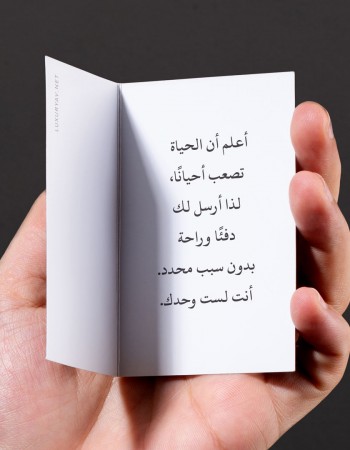 أعلم أن الحياة
تصعب أحيانًا،
لذا أرسل لك
دفئًا وراحة
بدون سبب محدد.
أنت لست وحدك.
LUXURYBY.NET